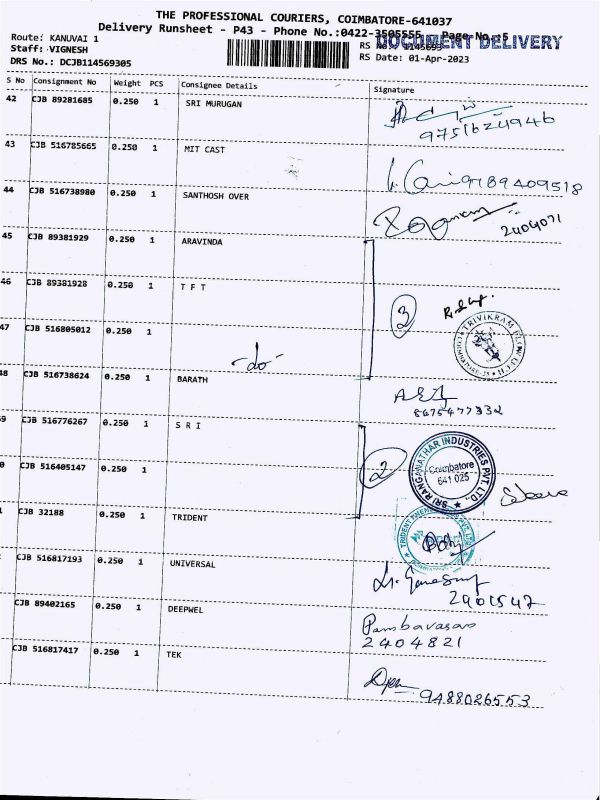 THE PROFESSIONAL COURIERS, COIMBATORE-641037
Delivery Runsheet - P43 - Phone No.:0422-3505555 Page No.:5
DOCUMENT DELIVERY
Route: KANUVAI 1
Staff: VIGNESH
RS Date: 01-Apr-2023
DRS No.: DCJB114569305
S No Consignment No Weight PCS Consignee Details Signature
42 CJB 89281685 0.250 1 SRI MURUGAN
9751624946
43 CJB 516785665 0.250 1 MIT CAST
9189409518
44 CJB 516738980 0.250 1 SANTHOSH OVER
2404071
45 CJB 89381929 0.250 1 ARAVINDA
46 CJB 89381928 0.250 1 T F T
3
47 CJB 516805012 0.250 1
-do-
48 CJB 516738624 0.250 1 BARATH
8675477332
9 CJB 516776267 0.250 1 S R I
2
SRI RANGANATHAR INDUSTRIES PVT. LTD.
Coimbatore
641 025
0 CJB 516405147 0.250 1
CJB 32188 0.250 1 TRIDENT
CJB 516817193 0.250 1 UNIVERSAL
2401547
CJB 89402165 0.250 1 DEEPWEL
Pambavasan
2404821
CJB 516817417 0.250 1 TEK
9488026553